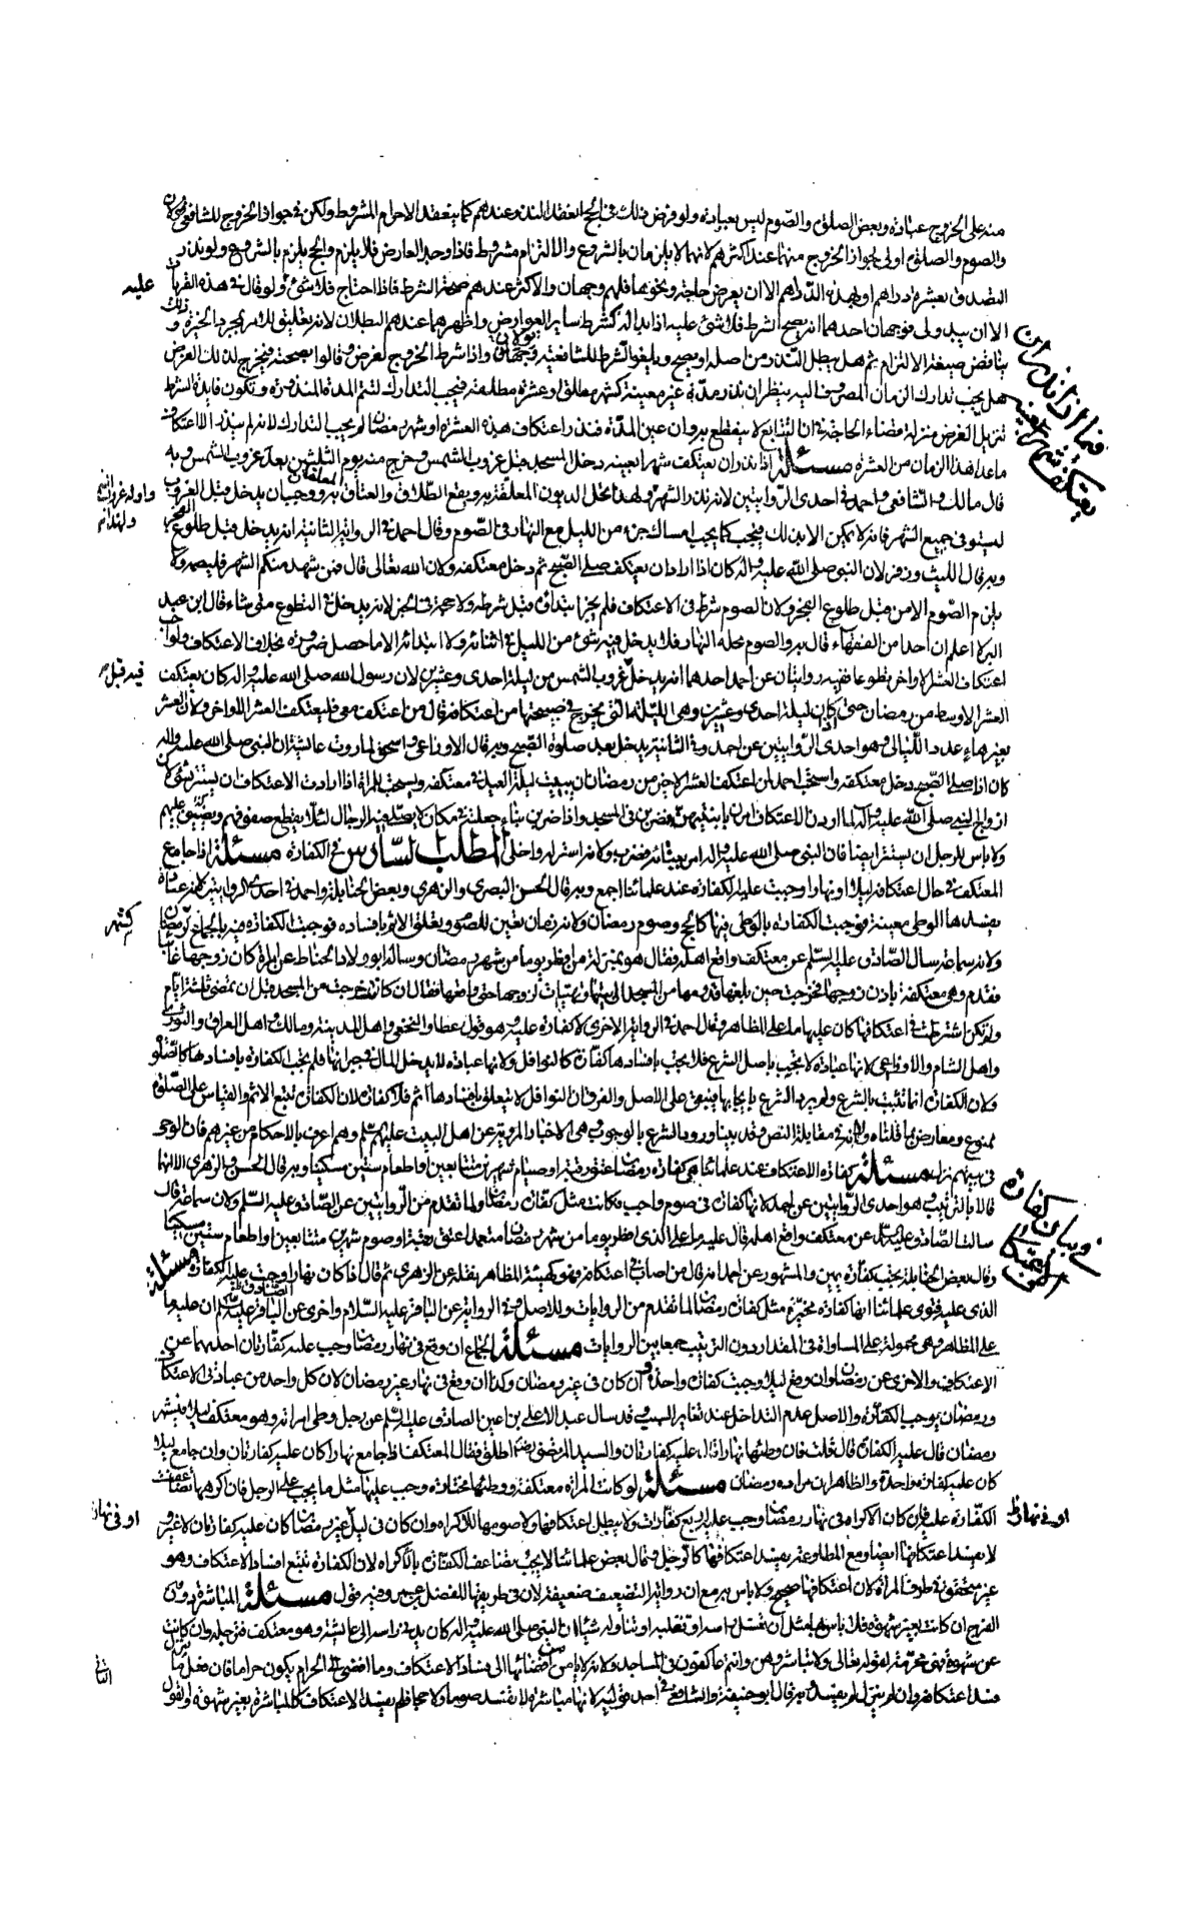 منه على الخروج عبادة وبعض الصلوة والصوم ليس بعبادة ولو فرض ذلك فى الحج انعقد النذر وعندهم كما ينعقد الاحرام المشروط ولكن فى جواز الخروج للشافعى قولان
والصوم والصلوة اولى بجواز الخروج منهما عند اكثرهم لانهما لا يلزمان بالشروع والالتزام مشروط فاذا وجد العارض فلا يلزم والحج يلزم بالشروع ولو نذر
التصدق بعشرة دراهم او بهذه الدراهم الا ان يعرض حاجة ونحوها فلهم وجهان والاكثر عندهم صحة الشرط فاذا احتاج فلا شئ عليه ولو قال فى هذه القربات
الا ان يبدو لى فوجهان احدهما انه يصح الشرط فلا شئ عليه اذا بدا له كشرط ساير العوارض واظهرهما عندهم البطلان لانه تعليق للامر بمجرد الخيرة وذلك
يناقض صيغة الالتزام ثم هل يبطل النذر من اصله او يصح ويلغو الشرط للشافعية قولان واذا شرط الخروج لغرض وقالوا بصحته فيخرج لذلك الغرض
هل يجب تدارك الزمان المصروف اليه ينظر ان نذر مدة غير معينة كشهر مطلق او عشرة مطلقة فيجب التدارك لتتم المدة المنذورة وتكون فايدة الشرط
تنزيل الغرض منزلة قضاء الحاجة فى ان التتابع لا ينقطع به وان عين المدة فنذر اعتكاف هذه العشرة او شهر رمضان لم يجب التدارك لانه لم ينذر الا اعتكاف
ما عدا هذا الزمان من العشرة مسئلة اذا نذر ان يعتكف شهرا بعينه دخل المسجد قبل غروب الشمس وخرج منه يوم الثلثين بعد غروب الشمس وبه
قال مالك والشافعى واحمد فى احدى الروايتين لانه نذر الشهر واوله غروب الشمس ولهذا تحل الديون المعلقة به ويقع الطلاق والعتاق المعلقان به ووجب ان يدخل قبل الغروب
ليستوفى جميع الشهر فانه لا يمكن الا بذلك فيجب كما يجب امساك جزء من الليل مع النهار فى الصوم وقال احمد فى الرواية الثانية انه يدخل قبل طلوع الفجر
وبه قال الليث وزفر لان النبى صلى الله عليه واله كان اذا اراد ان يعتكف صلى الصبح ثم دخل معتكفه ولان الله تعالى قال فمن شهد منكم الشهر فليصمه ولا
يلزم الصوم الا من قبل طلوع الفجر ولان الصوم شرط فى الاعتكاف فلم يجز ابتداؤه قبل شرطه ولا حجة فى الخبر لانه يدخل فى التطوع متى شاء قال ابن عبد
البر لا اعلم ان احدا من الفقهاء قال به والصوم محله النهار فلا يدخل فيه شئ من الليل فى اثنائه ولا ابتدائه الا ما حصل ضرورة بخلاف الاعتكاف ولو احب
اعتكاف العشر الاواخر تطوعا ففيه روايتان عن احمد احدهما انه يدخل فيه قبل غروب الشمس من ليلة احدى وعشرين لان رسول الله صلى الله عليه واله كان يعتكف
العشر الاوسط من رمضان حتى اذا كان ليلة احدى وعشرين وهى الليلة التى يخرج فى صبيحتها من اعتكافه قال من اعتكف معى فليعتكف العشر الاواخر ولان العشر
بغير هاء عدد الليالى وهو احدى الروايتين عن احمد وفى الثانية يدخل بعد صلوة الصبح وبه قال الاوزاعى واسحق لما روت عائشة ان النبى صلى الله عليه واله
كان اذا صلى الصبح دخل معتكفه واستحب احمد لمن اعتكف العشر الاخير من رمضان ان يبيت ليلة العيد فى معتكفه ويستحب للمراة اذا ارادت الاعتكاف ان تستتر بشئ لان
ازواج النبى صلى الله عليه واله لما اردن الاعتكاف امرن بابنيتهن فضربن فى المسجد واذا ضربن بناء جعلنه فى مكان لا يصلى فيه الرجال لئلا يقطع صفوفهم ويضيق عليهم
ولا باس للرجل ان يستتر ايضا فان النبى صلى الله عليه واله امر ببنائه فضرب ولانه استر له واخلى المطلب السادس فى الكفارة مسئلة اذا جامع
المعتكف فى حال اعتكافه ليلا او نهارا وجبت عليه الكفارة عند علمائنا اجمع وبه قال الحسن البصرى والزهرى وبعض الحنابلة واحمد فى احدى الروايتين لانه عبادة
يفسدها الوطى بعينه فوجبت الكفارة بالوطى فيها كالحج وصوم رمضان ولانه زمان تعين للصوم وتعلق الاثم بافساده فوجبت الكفارة فيه بالجماع كرمضان
ولان سماعة سال الصادق عليه السلم عن معتكف واقع اهله فقال هو بمنزلة من افطر يوما من شهر رمضان وساله ابو ولاد الحناط عن امراة كان زوجها غائبا
فقدم وهى معتكفة باذن زوجها فخرجت حين بلغها قدومها من المسجد الى بيتها وتهيات لزوجها حتى واقعها فقال ان كانت خرجت من المسجد قبل ان تمضى ثلثة ايام
ولم تكن اشترطت فى اعتكافها كان عليها ما على المظاهر وقال احمد فى الرواية الاخرى لا كفارة عليه وهو قول عطا والنخعى واهل المدينة ومالك واهل العراق والثورى
واهل الشام والاوزاعى لانها عبادة لا تجب باصل الشرع فلا يجب بافسادها كفارة كالنوافل ولانها عبادة لا يدخل المال فى جبرانها فلم يجب الكفارة بافسادها كالصلوة
ولان الكفارة انما تثبت بالشرع ولم يرد الشرع بايجابها فيبقى على الاصل والفرق ان النوافل لا يتعلق بافسادها اثم فلا كفارة لان الكفارة تتبع الاثم والقياس على الصلوة
ممنوع ومعارض بما قلناه ولانه فى مقابلة النص وقد بينا ورود الشرع بالوجوب وهى الاخبار المروية عن اهل البيت عليهم السلم وهم اعرف بالاحكام من غيرهم فان الوحى
فى بيتهم نزل مسئلة كفارة الاعتكاف عند علمائنا هى كفارة رمضان عتق رقبة او صيام شهرين متتابعين او اطعام ستين مسكينا وبه قال الحسن والزهرى الا انهما
قالا بالترتيب وهو احدى الروايتين عن احمد لانها كفارة فى صوم واجب فكانت مثل كفارة رمضان ولما تقدم من الروايتين عن الصادق عليه السلم ولان سماعة قال
سالت الصادق عليه السلم عن معتكف واقع اهله قال عليه ما على الذى افطر يوما من شهر رمضان متعمدا عتق رقبة او صوم شهرين متتابعين او اطعام ستين مسكينا
وقال بعض الحنابلة يجب كفارة يمين والمشهور عن احمد انه قال من اصاب فى اعتكافه فهو كهيئة المظاهر نقله عن الزهرى ثم قال اذا كان نهارا وجبت عليه الكفارة مسئلة
الذى عليه فتوى علمائنا انها كفارة مخيرة مثل كفارة رمضان لما تقدم من الروايات وللاصل وفى الرواية عن الباقر عليه السلام واخرى عن الصادق ان عليه ما
على المظاهر وهى محمولة على المساواة فى المقدار دون الترتيب جمعا بين الروايات مسئلة الجماع ان وقع فى نهار رمضان وجب عليه كفارتان احدهما عن
الاعتكاف والاخرى عن رمضان وان وقع ليلا وجبت كفارة واحدة وان كان فى غير رمضان وكذا ان وقع فى نهار غير رمضان لان كل واحد من عبادتى الاعتكاف
ورمضان يوجب الكفارة والاصل عدم التداخل عند تغاير السبب وقد سال عبد الاعلى بن اعين الصادق عليه السلم عن رجل وطى امراته وهو معتكف ليلا فى شهر
رمضان قال عليه الكفارة قال قلت فان وطئها نهارا قال عليه كفارتان والسيد المرتضى اطلق فقال المعتكف اذا جامع نهارا كان عليه كفارتان وان جامع ليلا
كان عليه كفارة واحدة والظاهر ان مراده رمضان مسئلة لو كانت المراة معتكفة ووطئها مختارة وجب عليها مثل ما يجب على الرجل فان اكرهها تضاعفت
الكفارة عليه فان كان الاكراه فى نهار رمضان وجب عليه اربع كفارات ولا يبطل اعتكافها ولا صومها للاكراه وان كان فى ليل غير رمضان كان عليه كفارتان لا غير و
لا يفسد اعتكافها ايضا ومع المطاوعة يفسد اعتكافها كالرجل وقال بعض علمائنا لا يجب تضاعف الكفارة بالاكراه لان الكفارة تتبع افساد الاعتكاف وهو
غير متحقق فى طرف المراة لان اعتكافها صحيح ولا باس به مع ان رواية التضعيف ضعيفة لان فى طريقها المفضل بن عمر وفيه قول مسئلة المباشرة دون
الفرج ان كانت بغير شهوة فلا باس بها مثل ان تغسل راسه او تفليه او تناوله شيئا لان النبى صلى الله عليه واله كان يدنى راسه الى عائشة وهو معتكف فترجله وان كانت
عن شهوة فهى محرمة لقوله تعالى ولا تباشروهن وانتم عاكفون فى المساجد ولانه لا يامن من افضائها الى افساد الاعتكاف وما افضى الى الحرام يكون حراما فان فعل فانزل
فسد اعتكافه وان لم ينزل لم يفسد وبه قال ابو حنيفة والشافعى فى احد قوليه لانها مباشرة لا تفسد صوما ولا حجا فلم يفسد الاعتكاف كالمباشرة بغير شهوة والقول
فيما اذا نذر ان يعتكف شهرا بعينه
فى بيان كفارة الاعتكاف
عليه
واوله غروب الشمس
ولهذا
فيه قبل
او فى نهار
او فى نهار